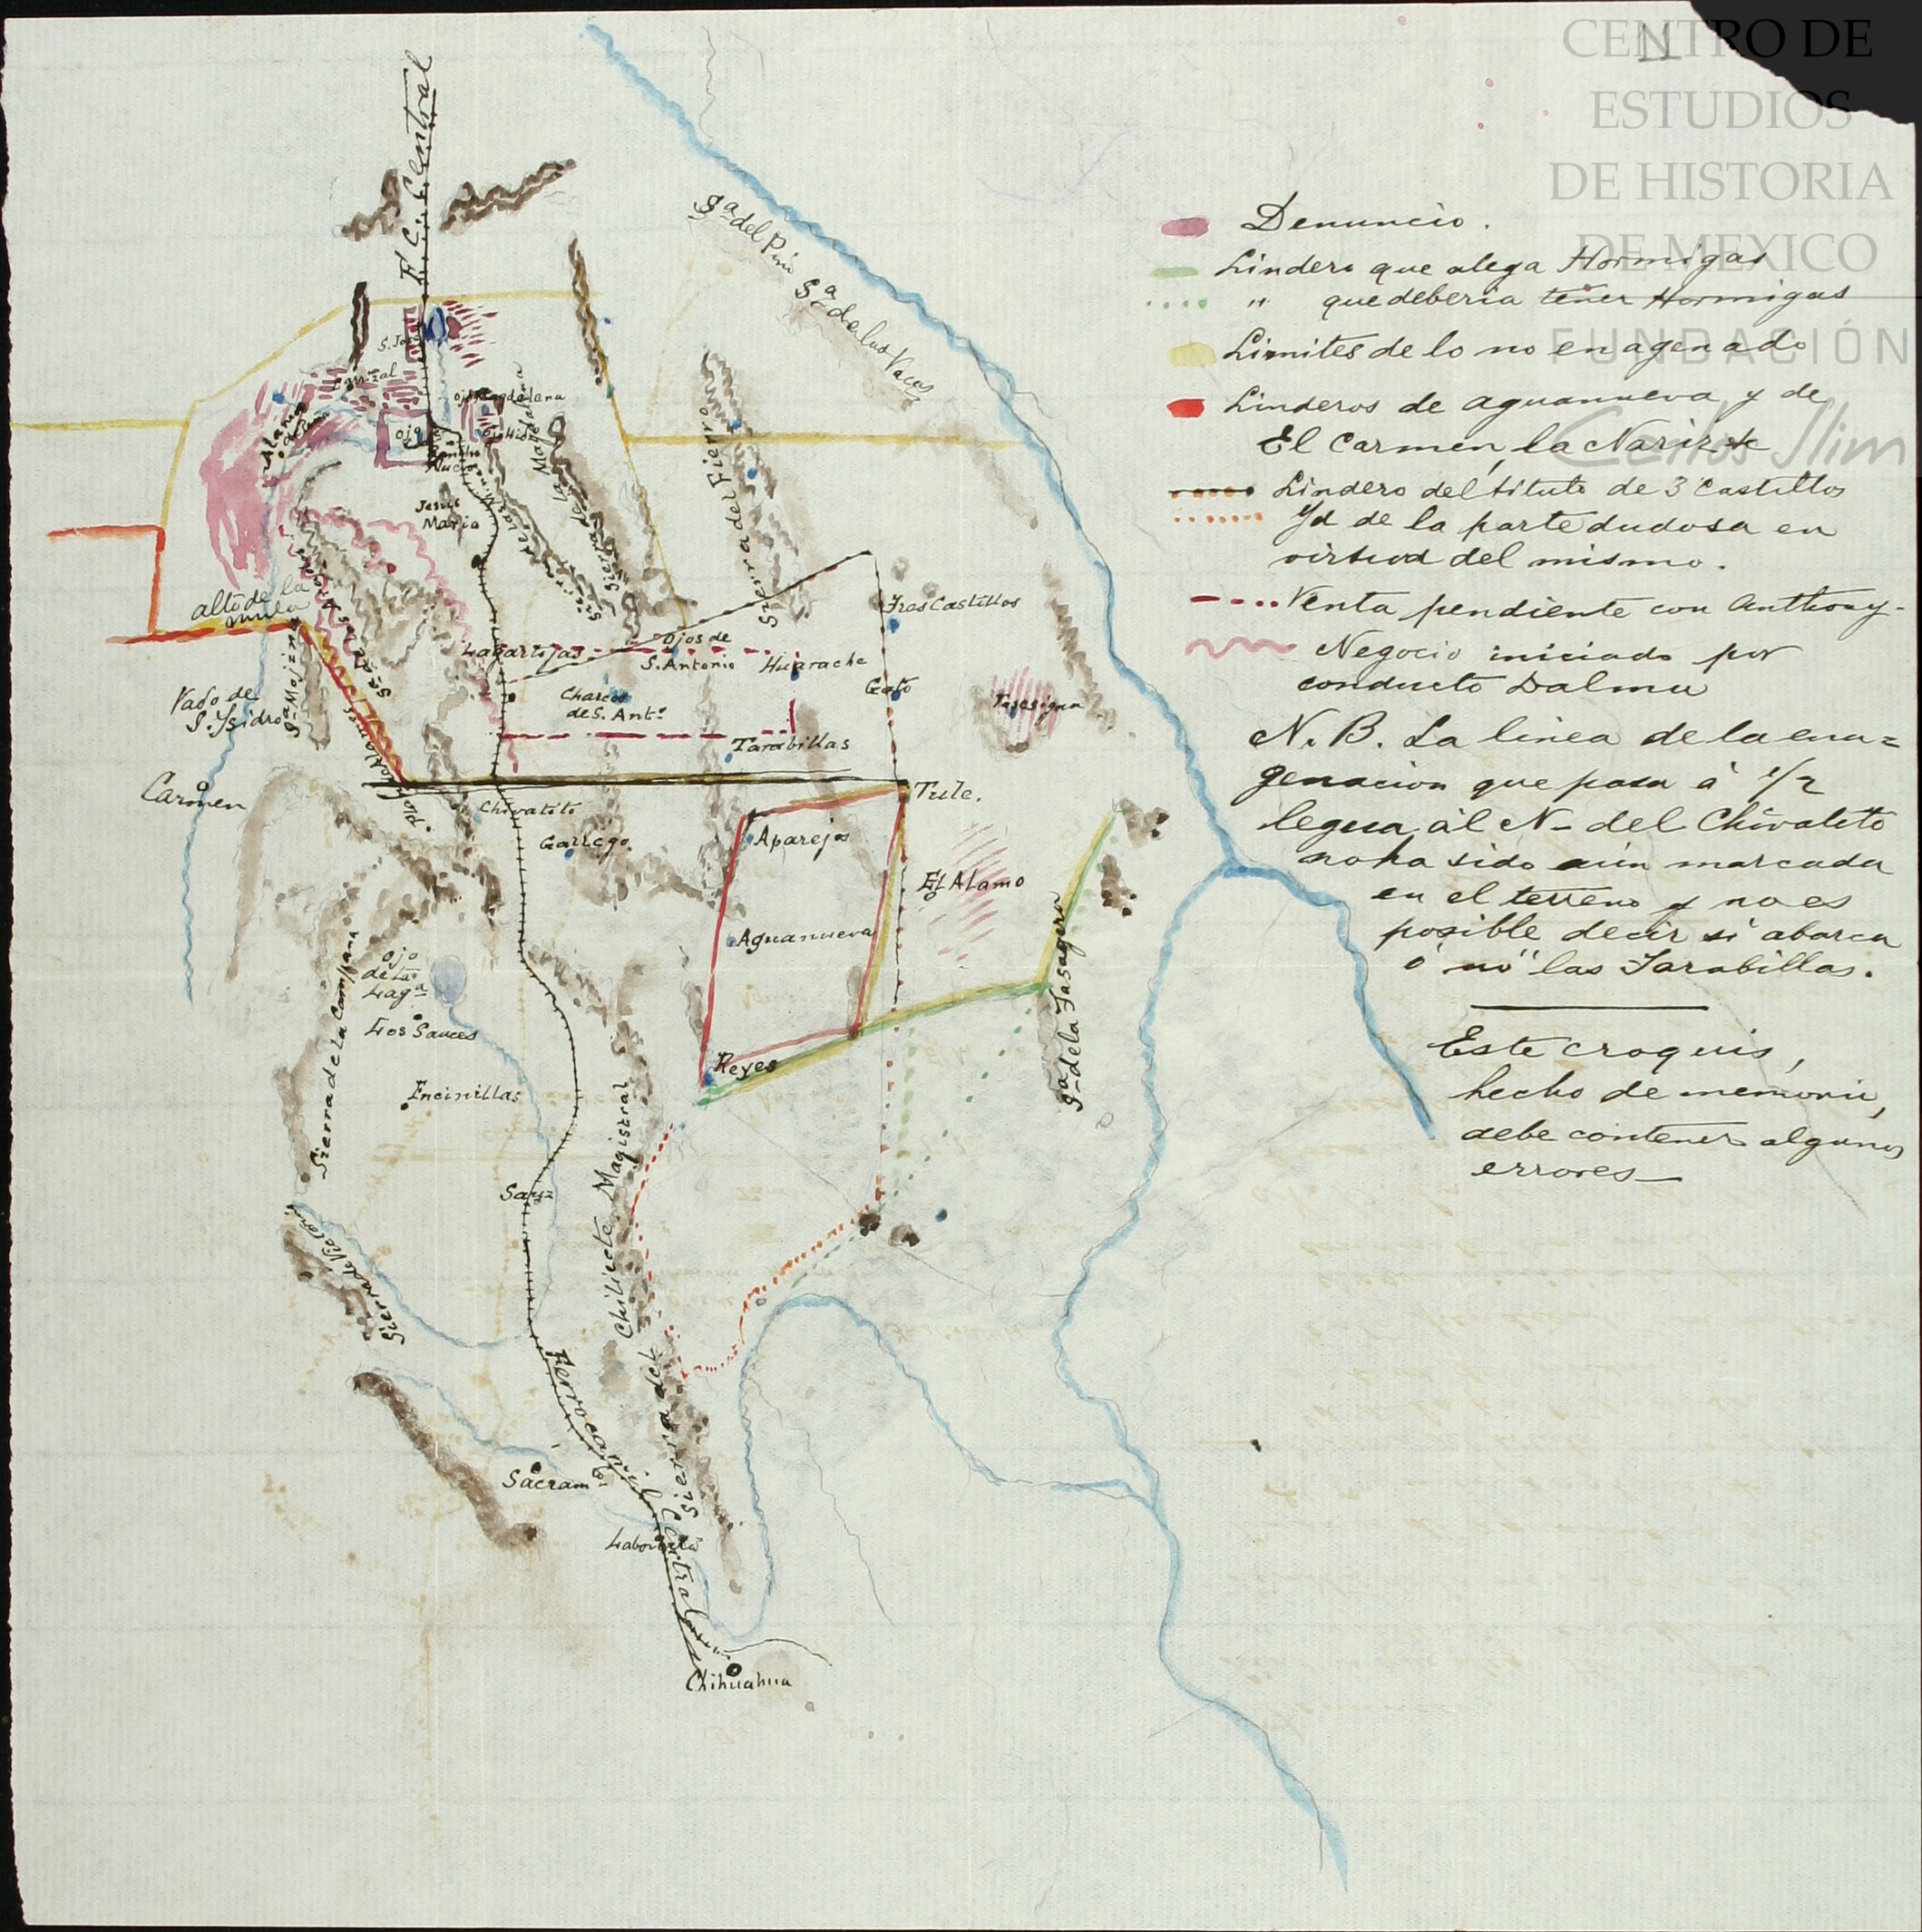 CENTRO DE
ESTUDIOS
DE HISTORIA
DE MEXICO
FUNDACIÓN
Carlos Slim
Denuncio.
Lindero que alega Hormigas
" que deberia tener Hormigas
Limites de lo no enagenado
Linderos de aguanueva y de
El Carmen, la Nariz &
Lindero del titulo de 3 Castillos
Yd de la parte dudosa en
virtud del mismo.
Venta pendiente con Anthony-
Negocio iniciado por
conducto Dalmu
N. B. La linea de la ena=
genacion que pasa á 1/2
legua ál N- del Chivatito
no ha sido aún marcada
en el terreno y no es
posible decir si abarca
ó nó las Tarabillas.
Este croquis,
hecho de memoria,
debe contener algunos
errores—
F. C. Central
Sª del Pino
Sª de las Vacas
S. José
Carrizal
Ojo Magdalena
Ojo
Rancho
Nuevo
Jesus
Maria
Sierra de la Magdalena
Sierra del Fierro
alto de la
mula
Lagartijas
Ojos de
S. Antonio
Huarache
Tres Castillos
Gato
Charcos
de S. Antº
Tarabillas
Vado de
S. Ysidro
Carmen
Chivatito
Gallego.
Tule.
Aparejos
El Alamo
Aguanueva
Reyes
Ojo
de la
Lagª
Los Sauces
Encinillas
Sierra de la Campana
Sauz
Sierra del Chilicote Magistral
Sacramto
Ferrocarril Central
Chihuahua